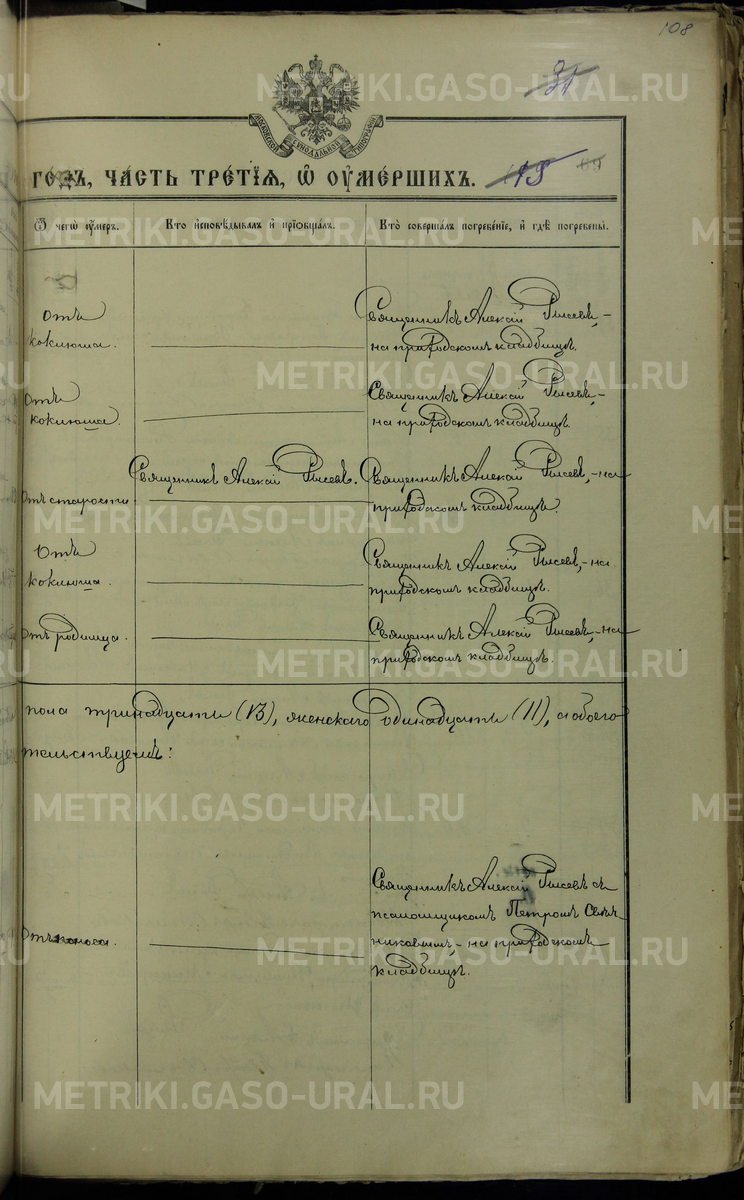 108
31
МОСКОВСКОЙ СѴНОДАЛЬНОЙ ТИПОГРАФІИ
ГОДЪ, ЧАСТЬ ТРЕТІЯ, Ѿ ОУМЕРШИХЪ. 13
Ѿ чегѡ оумеръ. Кто исповѣдывалъ и пріобщалъ. Кто совершалъ погребеніе, и гдѣ погребены.
Отъ
коклюша.
Священникъ Алексій
на приходскомъ кладбищѣ.
Отъ
коклюша.
Священникъ Алексій
на приходскомъ кладбищѣ.
Отъ старости.
Священникъ Алексій
Священникъ Алексій на
приходскомъ кладбищѣ.
Отъ
коклюша.
Священникъ Алексій на
приходскомъ кладбищѣ.
Отъ родимца.
Священникъ Алексій на
приходскомъ кладбищѣ.
пола тринадцать (13), женскаго одинадцать (11), а обоего
тельствуемъ:
Отъ поноса.
Священникъ Алексій съ
псаломщикомъ Петромъ
никовымъ, на приходскомъ
кладбищѣ.
METRIKI.GASO-URAL.RU